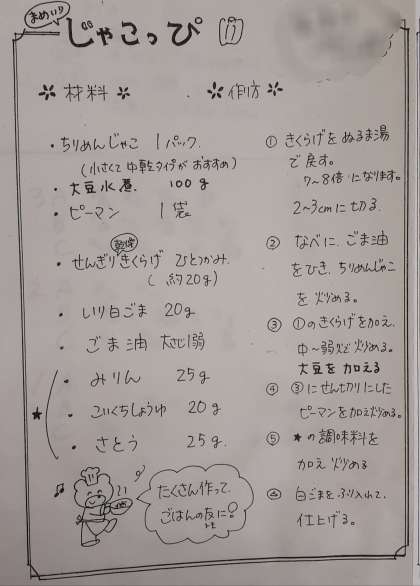 おいしい!!
じゃこっぴ
材料
・ちりめんじゃこ 1パック
(小さくて中乾タイプがおすすめ)
・大豆水煮 100g
・ピーマン 1袋
乾燥
・せんぎりきくらげ ひとつかみ
(約20g)
・いり白ごま 20g
・ごま油 大さじ1弱
★
・みりん 25g
・こいくちしょうゆ 20g
・さとう 25g
たくさん作って、
ごはんの友に!
作方
① きくらげをぬるま湯
で戻す。
7~8倍になります。
2~3cmに切る
② なべに、ごま油
をひき、ちりめんじゃこ
を炒める。
③ ①のきくらげを加え、
中~弱火で炒める。
大豆を加える
④ ③にせん切りにした
ピーマンを加え炒める。
⑤ ★の調味料を
加え炒める
⑥ 白ごまをふり入れて、
仕上げる。